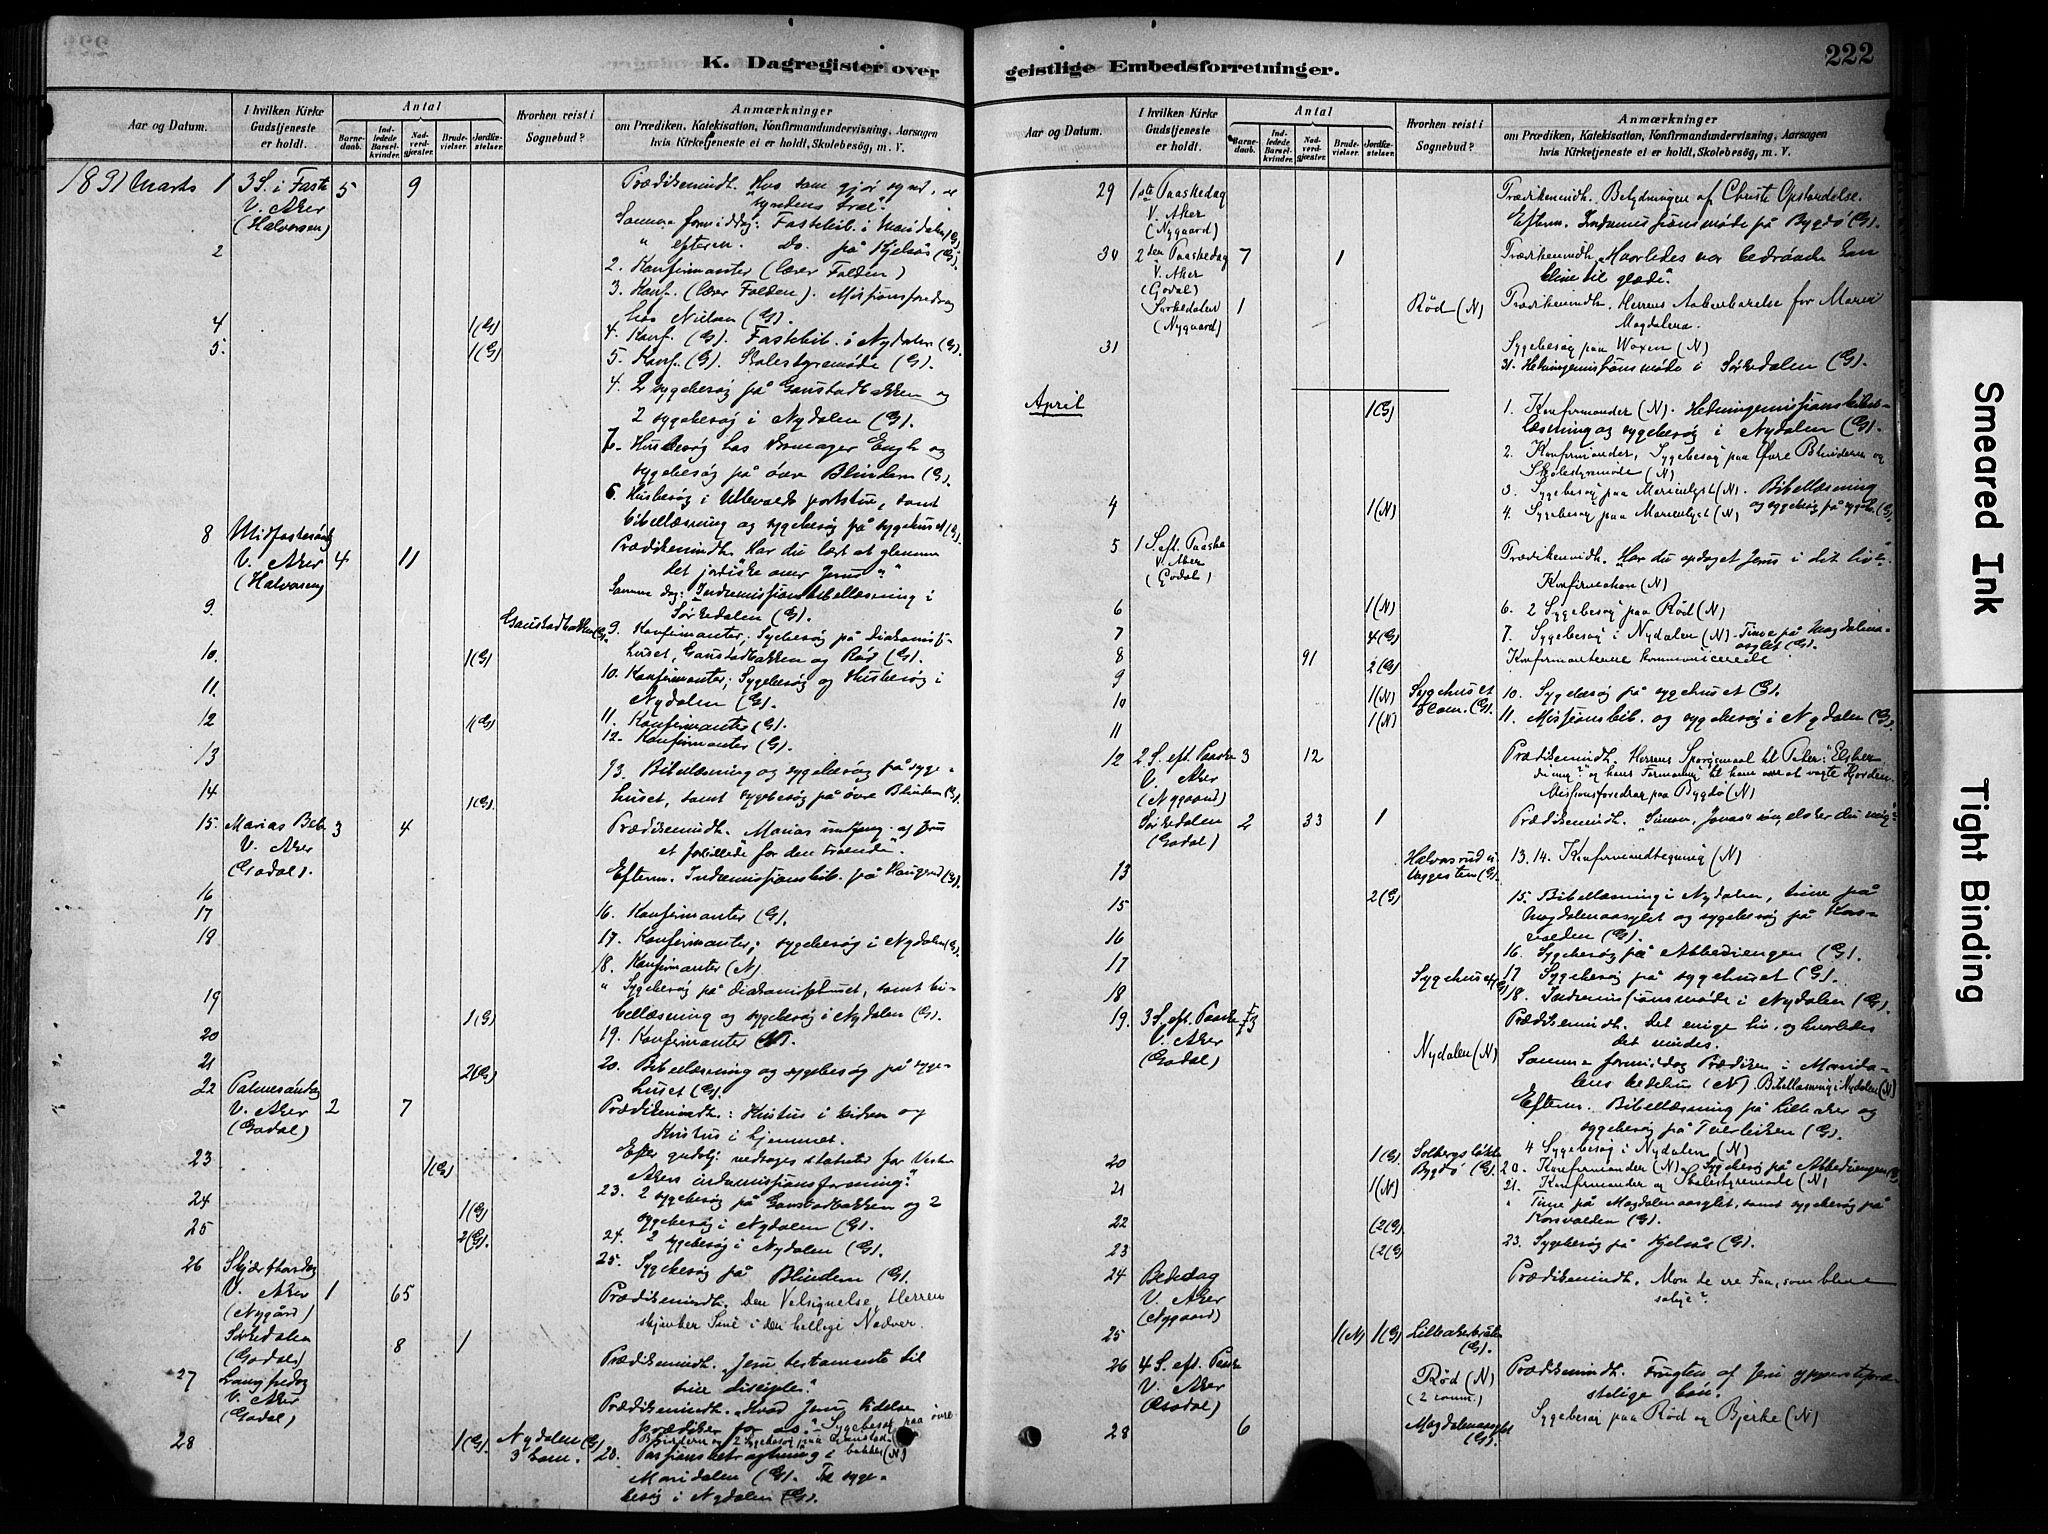 222
K. Dagregister over
geistlige Embedsforretninger.
Aar og Datum.
I hvilken Kirke Gudstjeneste er holdt.
Antal
Barnedaab.
Indledede Barselkvinder.
Nadverdgjæster.
Brudevielser.
Jordfæstelser.
Hvorhen reist i Sognebud?
Anmærkninger
om Prædiken, Katekisation, Konfirmandundervisning, Aarsagen
hvis Kirketjeneste ei er holdt, Skolebesøg, m. V.
1891 Marts 1 3 S. i Faste 5 9 Prædikenindh. Hos som gjør synd, er
V. Aker syndens træl".
(Halvorsen) Samme formiddag: Fastebib. i Maridalen (G)
" efterm. do. på Kjelsås (G).
2 2. Konfirmanter (lærer Falden)
3. Konf. (lærer Falden). Missionsforedrag
hos Nielsen (G).
4 1(G) 4. Konf. (G). Fastebib. i Nydalen (G).
5. 1(G) 5. Konf. (G). Skolestyremøde (G).
4. 2 sygebesøg på Gaustadbakken og
2 sygebesøg i Nydalen (G).
7. Husbesøg hos Engh og
sygebesøg på øvre Blindern (G).
6. Husbesøg i Ullevålds portstue, samt
bibellæsning og sygebesøg på sygehuset (G).
8 Midfastesønd. Prædikenindh. Har du lært at glemme
V. Aker 4 11 det jordiske over Jesus"
(Halvorsen) Samme dag: Indremissionsbibellæsning i
Sørkedalen (G).
9. Gaustadbakken (G). 9. Konfirmanter; Sygebesøg på Diakonis-
huset, Gaustadbakken og Rød (G).
10. 1(G) 10. Konfirmanter; Sygebesøg og Husbesøg i
Nydalen (G).
11. 11. Konfirmanter (G).
12 1(G) 12. Konfirmanter (G).
13 13. Bibellæsning og sygebesøg på syge-
14 1(G) huset, samt sygebesøg på øvre Blindern (G).
15. Marias Beb. 3 4 Prædikenindh. Marias omgang af Jesus
V. Aker et forbillede for den troende".
(Godal). Efterm. Indremissionsbib. på Haugerud (G).
16 16. Konfirmanter (G).
17 17. Konfirmanter; sygebesøg i Nydalen (G).
18 18. Konfirmanter (N)
" Sygebesøg på Diakonissehuset, samt bi-
19 1(G) bellæsning og sygebesøg i Nydalen (G).
20 19. Konfirmanter (N).
21 2(G) 20. Bibellæsning og sygebesøg på syge-
huset (G).
22 Palmesøndag Prædikenindh.: Kristus i kirken og
V. Aker 2 7 Kristus i hjemmet.
(Godal) Efter gudstj. vedtoges statuter for Vestre
23 1(G) Akers indremissionsforening."
23. 2 sygebesøg på Gaustadbakken og 2
24 1(G) sygebesøg i Nydalen (G).
25 2(G). 24. 2 sygebesøg i Nydalen (G).
25. Sygebesøg på Blindern (G).
26 Skjærthorsdag Prædikenindh. Den Velsignelse, Herren
V. Aker 1 65 skjænker Sine i den hellige Nadver.
(Nygård)
Sørkedalen 8 1
(Godal) Prædikenindh. Jesu testamente til
27 Langfredag sine disciple."
V. Aker Prædikenindh. "Hvad Jesu lidelse
(Godal) prædiker for os." Sygebesøg paa øvre
Blindern og 2 Sygebesøg paa Gaustadbakken (N)
28 1(G) Nydalen (G) 3 kom. 28. Passionsbetragtning i
Maridalen (G). To syge-
besøg i Nydalen (G).
Aar og Datum.
I hvilken Kirke Gudstjeneste er holdt.
Antal
Barnedaab.
Indledede Barselkvinder.
Nadverdgjæster.
Brudevielser.
Jordfæstelser.
Hvorhen reist i Sognebud?
Anmærkninger
om Prædiken, Katekisation, Konfirmandundervisning, Aarsagen
hvis Kirketjeneste ei er holdt, Skolebesøg, m. V.
29 1ste Paaskedag Prædikenindh. Betydningen af Christi Opstandelse.
V. Aker
(Nygaard) Efterm. Indremissionsmøde på Bygdø (G).
30 2den Paaskedag 7 1 Prædikenindh. Hvorledes vor bedrøvelse kan
V. Aker blive til glæde."
(Godal)
Sørkedalen 1 Rød (N) Prædikenindh. Herrens Aabenbarelse for Maria
(Nygaard) Magdalena.
31 Sygebesøg paa Voxen (N)
31. Hedningemissionsmøde i Sørkedalen (G).
April 1(G) 1. Konfirmander (N). Hedningemissionsbibel-
læsning og sygebesøg i Nydalen (G).
2. Konfirmander, Sygebesøg paa Øvre Blindern og
Skolestyremøde (N)
3. Sygebesøg paa Marienlyst (N). Bibellæsning
4 1(N) 4. Sygebesøg paa Marienlyst (N) og sygebesøg på sygeh. (G).
5 1 S. eft. Paaske Prædikenindh. "Har du opdaget Jesus i dit liv".
V. Aker
(Godal) Konfirmation (N)
6 1(N) 6. 2 Sygebesøg paa Rød (N)
7 4(G) 7. Sygebesøg i Nydalen (N). Time på Magdalena-
asylet (G).
8 91 2(G) Konfirmanterne kommunicerede
9
10 1(N) Sygehuset (G). 10. Sygebesøg på sygehuset (G).
11 1(N) 11. Missionsbib. og sygebesøg i Nydalen (G).
12 2 S. eft. Paaske 3 12 Prædikenindh. Herrens Spørgsmaal til Peter: "Elsker
V. Aker du mig?" og hans Formaning til ham om at vogte Hjorden.
(Nygaard) Missionsforedrag paa Bygdø (N)
Sørkedalen 2 33 1 Prædikenindh. "Simon, Jonas' søn, elsker du mig?"
(Godal)
13 (G). 13. 14. Konfirmandtegning (N)
15 2(G) 15. Bibellæsning i Nydalen, time på
Magdalenaasylet og sygebesøg på Kors-
volden (G).
16 16. Sygebesøg på Abbediengen (G).
17 Sygehuset (G) 17 Sygebesøg på sygehuset (G).
18 18. Indremissionsmøde i Nydalen (G).
19. 3 S. eft. Paaske Prædikenindh. Det evige liv, og hvorledes
V. Aker det vindes.
(Godal) Nydalen (N) Samme formiddag Prædiken i Marida-
lens bedehus (N). Bibellæsning i Nydalen (N)
Efterm. Bibellæsning på Lilleaker og
sygebesøg på (G).
4 Sygebesøg i Nydalen (N)
20 1(G) Solbergsløkke Bygdø (G). 20. Konfirmander (N). Sygebesøg på Abbediengen (G).
21 1(N) 21. Konfirmander og Skolestyremøde (N)
" Time på Magdalenaasylet, samt sygebesøg på
22 (2(G) Korsvolden (G).
23 (2(G) 23. Sygebesøg på Kjelsås (G).
24 Bededag Prædikenindh. Mon de ere Faa, som blive
V. Aker salige?
(Nygaard)
25 1(N) 1(G) (G).
26 4 S. eft. Paaske Rød (N) Prædikenindh. Frugten af Jesu ypperstepræ-
V. Aker (2 comm.) stelige bøn.
(Godal) Sygebesøg paa Rød og Bjerke (N)
28 6 Magdalenaasylet (G).
Smeared Ink
Tight Binding